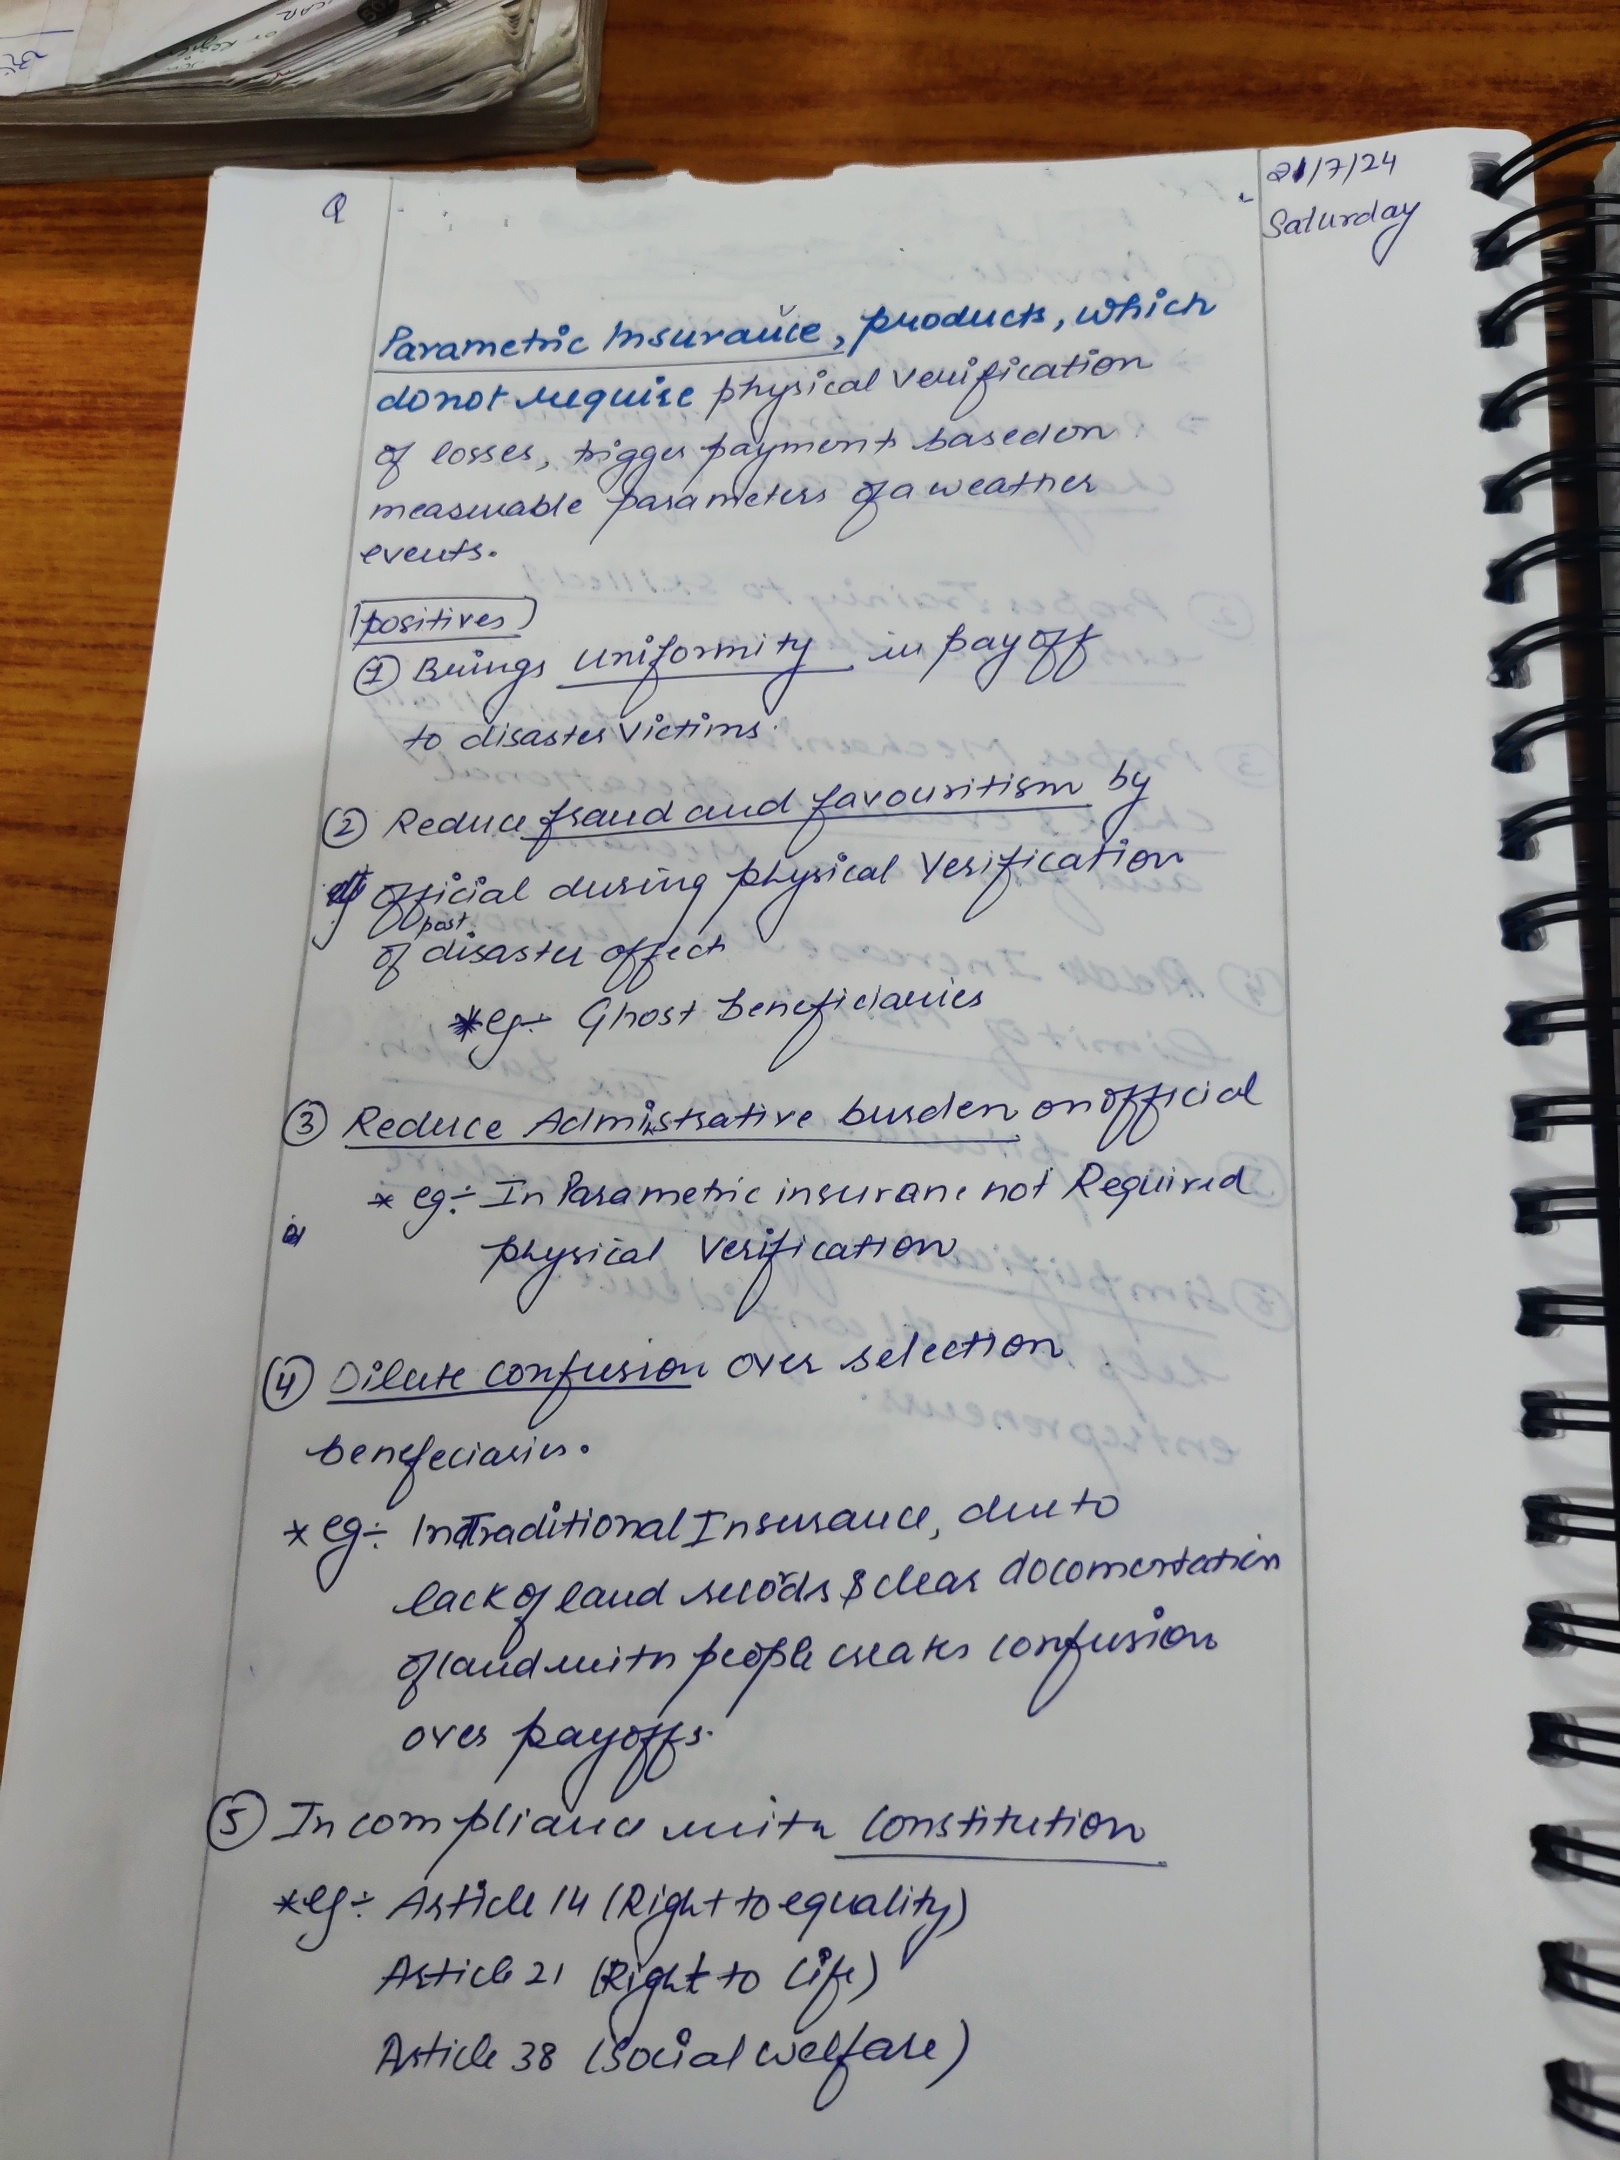 Q
21/7/24
Saturday
Parametric Insurance, products, which
do not require physical verification
of losses, trigger payments based on
measurable parameters of a weather
events.
positives
① Brings uniformity in pay off
to disaster victims.
② Reduce fraud and favouritism by
official during physical verification
post
of disaster effect
*eg÷ Ghost beneficiaries
③ Reduce Adminstrative burden on official
* eg÷ In Parametric insuranc not Required
physical verification
④ Dilute confusion over selection
benefeciaries.
* eg÷ In Traditional Insurance, due to
lack of land records & clear documentation
of land with people creates confusion
over payoffs.
⑤ In compliance with constitution
*eg÷ Article 14 (Right to equality)
Article 21 (Right to life)
Article 38 (Social welfare)